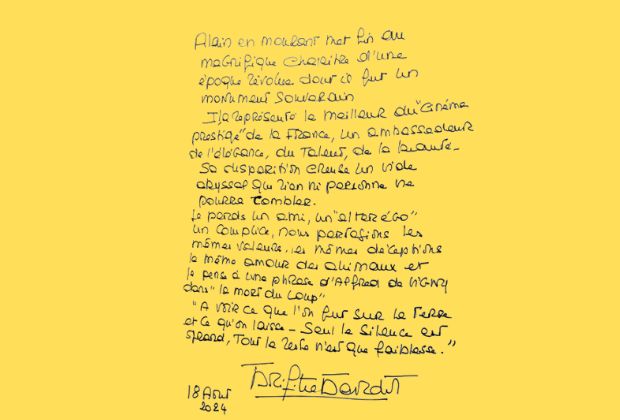 Alain en mourant met fin au
magnifique chapitre d'une
époque révolue dont il fut un
monument souverain
Il a représenté le meilleur du "cinéma
prestige" de la France, un ambassadeur
de l'élégance, du talent, de la beauté -
Sa disparition creuse un vide
abyssal que rien ni personne ne
pourra combler.
Je perds un ami, un "alter égo"
un complice, nous partagions les
mêmes valeurs, les mêmes déceptions
le même amour des animaux et
je pense à une phrase d'Alfred de Vigny
dans "la mort du Loup"
"A voir ce que l'on fut sur la Terre
et ce qu'on laisse - Seul le silence est
grand, Tout le reste n'est que faiblesse."
Brigitte Bardot
18 Août
2024